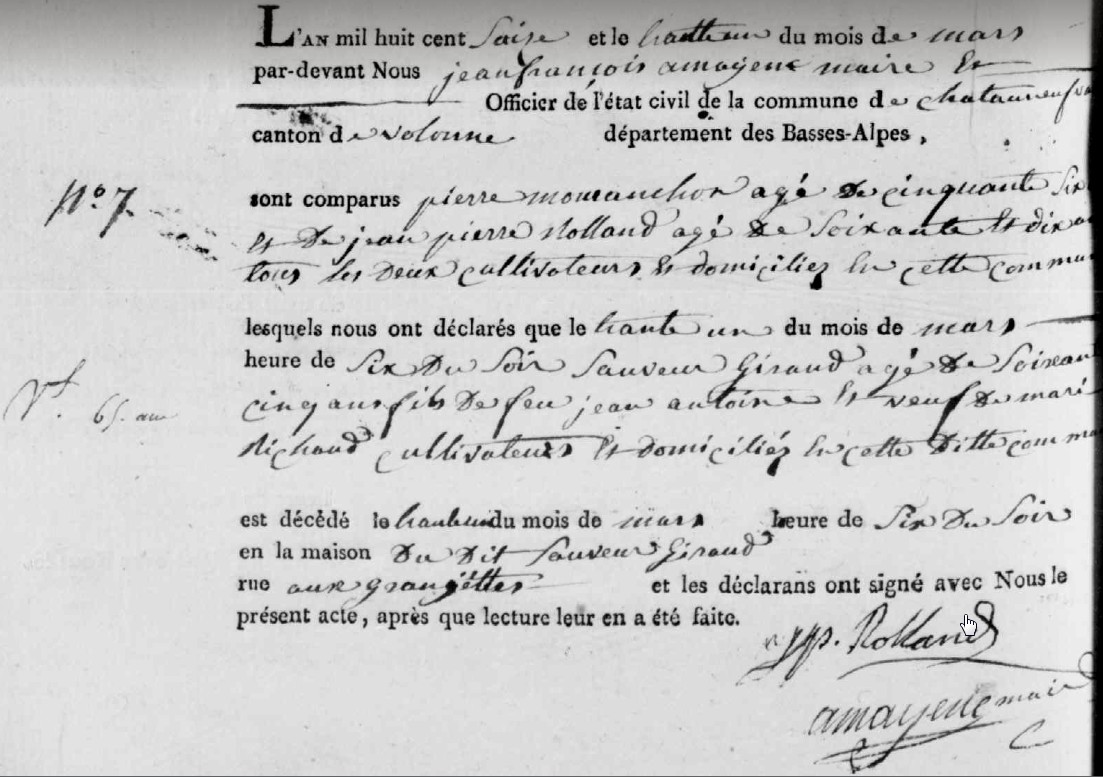 L'AN mil huit cent saise et le trante un du mois de mars
par-devant Nous jean françois amayenc maire Et
Officier de l'état civil de la commune de chatauneuf va
canton de volonne département des Basses-Alpes,
N.o 7 sont comparus pierre mouranchon agé de cinquante six
Et De jean pierre Rolland agé de soixante Et dix a
tous les deux cultivateurs Et domiciliez En cette commun
lesquels nous ont déclarés que le trante un du mois de mars
heure de six Du soir sauveur Giraud agé de soixant
65 ans cinq ans fils De feu jean antoine Et veuf de mari
Richaud cultivateurs Et domiciliéz En cette Ditte comma
est décédé le trante un du mois de mars heure de six Du soir
en la maison Du Dit sauveur Giraud
rue aux grangettes et les déclarans ont signé avec Nous le
présent acte, après que lecture leur en a été faite.
jp. Rolland
amayenc maire